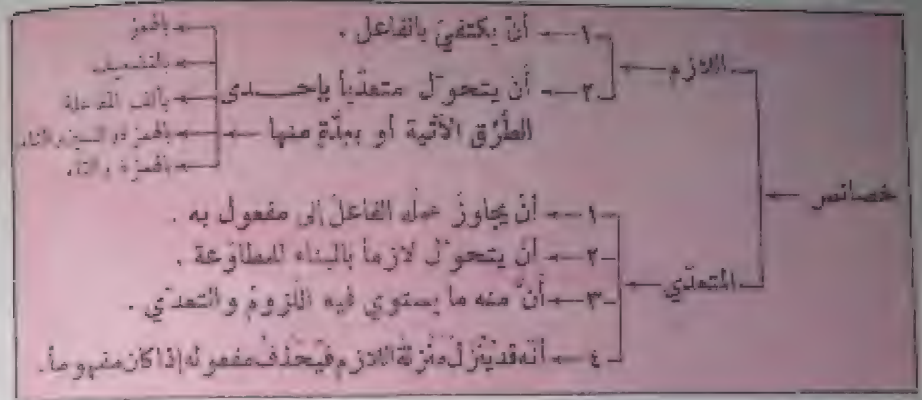 خصائص
اللازم
١ — أنْ يكتفيَ بالفاعل .
٢ — أن يتحوّل متعدّياً بإحدى
الطُرُق الآتية أو بعِدّةٍ منها
بالهمز
بالتضعيف
بألف المفاعلة
بالهمز والسين والتاء
المتعدّي
١ — أنْ يجاوزَ عمله الفاعلَ إلى مفعول به .
٢ — أن يتحوّل لازماً بالبناء للمطاوَعة .
٣ — أنّ منه ما يستوي فيه اللّزومُ والتعدّي .
٤ — أنّه قد يُنزل منزلة اللازم فيُحذف مفعوله إذا كان مفهوماً .